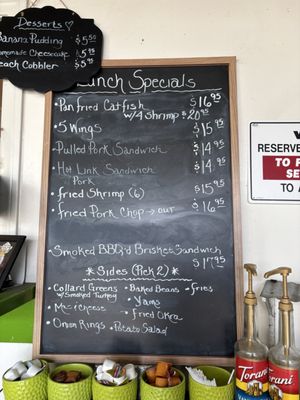 Desserts
Banana Pudding $5.50
Homemade Cheesecake $5.95
Peach Cobbler $5.95
Lunch Specials
• Pan fried Catfish $16.95
w/4 Shrimp $20.95
• 5 Wings $15.95
• Pulled Pork Sandwich $14.95
• Hot Link Sandwich $14.95
Pork
• fried Shrimp (6) $15.95
• fried Pork Chop → our $16.95
• Smoked BBQ'd Brisket Sandwich
$17.95
* Sides (Pick 2) *
• Collard Greens • Baked Beans • fries
w/Smoked Turkey
• Yams
• Mac&Cheese
• fried Okra
• Onion Rings • Potato Salad
RESERVE
TO P
SE
TO A
Torani
Torani